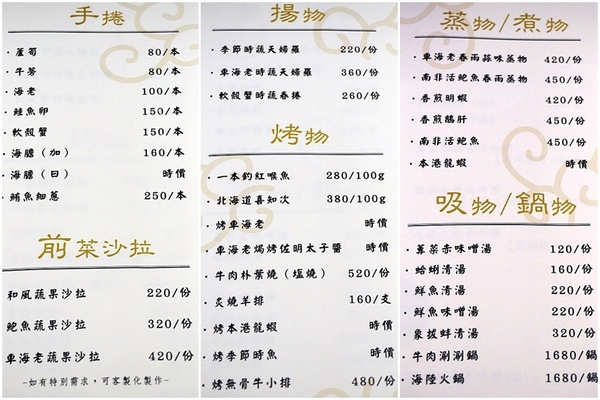 手捲
・蘆筍 80/本
・牛蒡 80/本
・海老 100/本
・鮭魚卵 150/本
・軟殼蟹 150/本
・海膽（加） 160/本
・海膽（日） 時價
・鮪魚細蔥 250/本
前菜沙拉
和風蔬果沙拉 220/份
鮑魚蔬果沙拉 320/份
車海老蔬果沙拉 420/份
-如有特別需求，可客製化製作-
揚物
・季節時蔬天婦羅 220/份
・車海老時蔬天婦羅 360/份
・軟殼蟹時蔬春捲 260/份
烤物
・一本釣紅喉魚 280/100g
・北海道喜知次 380/100g
・烤車海老 時價
・車海老焗烤佐明太子醬 時價
・牛肉朴葉燒（塩燒） 520/份
・炙燒羊排 160/支
・烤本港龍蝦 時價
・烤季節時魚 時價
・烤無骨牛小排 480/份
蒸物/煮物
・車海老春雨蒜味蒸物 420/份
・南非活鮑魚春雨蒸物 450/份
・香煎明蝦 420/份
・香煎鵝肝 450/份
・南非活鮑魚 450/份
・本港龍蝦 時價
吸物/鍋物
・蓴菜赤味噌湯 120/份
・蛤蜊清湯 160/份
・鮮魚清湯 220/份
・鮮魚味噌湯 220/份
・象拔蚌清湯 320/份
・牛肉涮涮鍋 1680/鍋
・海陸火鍋 1680/鍋